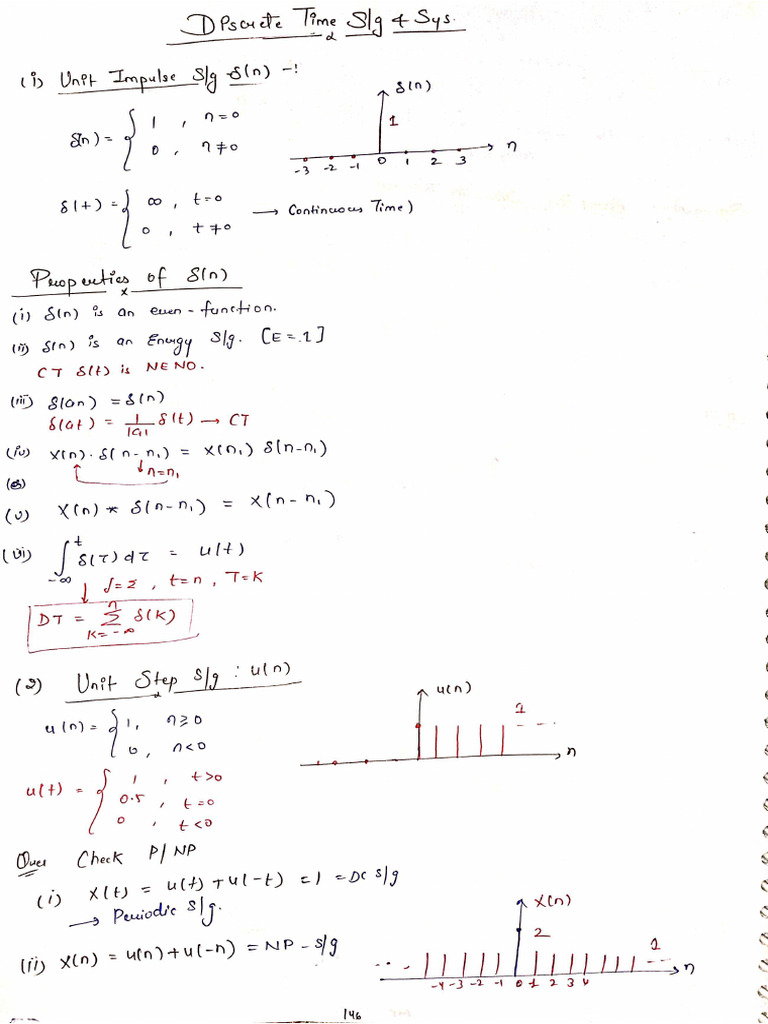 Discrete Time S/g & Sys.
(i) Unit Impulse S/g δ(n) -:
δ(n) = { 1 , n=0
0 , n≠0
δ(n)
1
-3 -2 -1 0 1 2 3 n
δ(t) = { ∞ , t=0
0 , t≠0
→ Continuous Time)
Properties of δ(n)
(i) δ(n) is an even-function.
(ii) δ(n) is an Energy S/g. [E=1]
CT δ(t) is NENO.
(iii) δ(an) = δ(n)
δ(at) = 1/|a| δ(t) → CT
(iv) x(n)·δ(n-n₁) = x(n₁) δ(n-n₁)
n=n₁
(v) x(n) * δ(n-n₁) = x(n-n₁)
(vi) ∫_{-∞}^{t} δ(τ)dτ = u(t)
↓ ∫=Σ , t=n , T=K
DT = Σ_{K=-∞}^{n} δ(K)
(2) Unit Step S/g : u(n)
u(n) = { 1, n≥0
0, n<0
u(n)
1
n
u(t) = { 1 , t>0
0.5 , t=0
0 , t<0
Ques Check P/NP
(i) x(t) = u(t)+u(-t) = 1 = DC S/g
→ Periodic S/g.
(ii) x(n) = u(n)+u(-n) = NP-S/g
x(n)
2
1
-4 -3 -2 -1 0 1 2 3 4 n
146